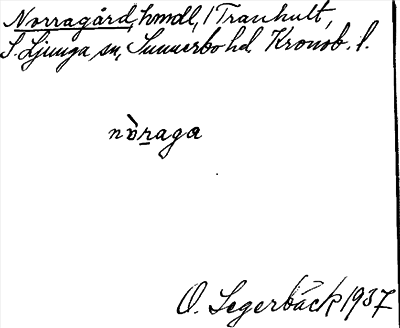 Norragård, hmdl, i Tranhult,
S. Ljunga sn, Sunnerbo hd Kronob. l.
nòraga
O. Segerbäck 1937